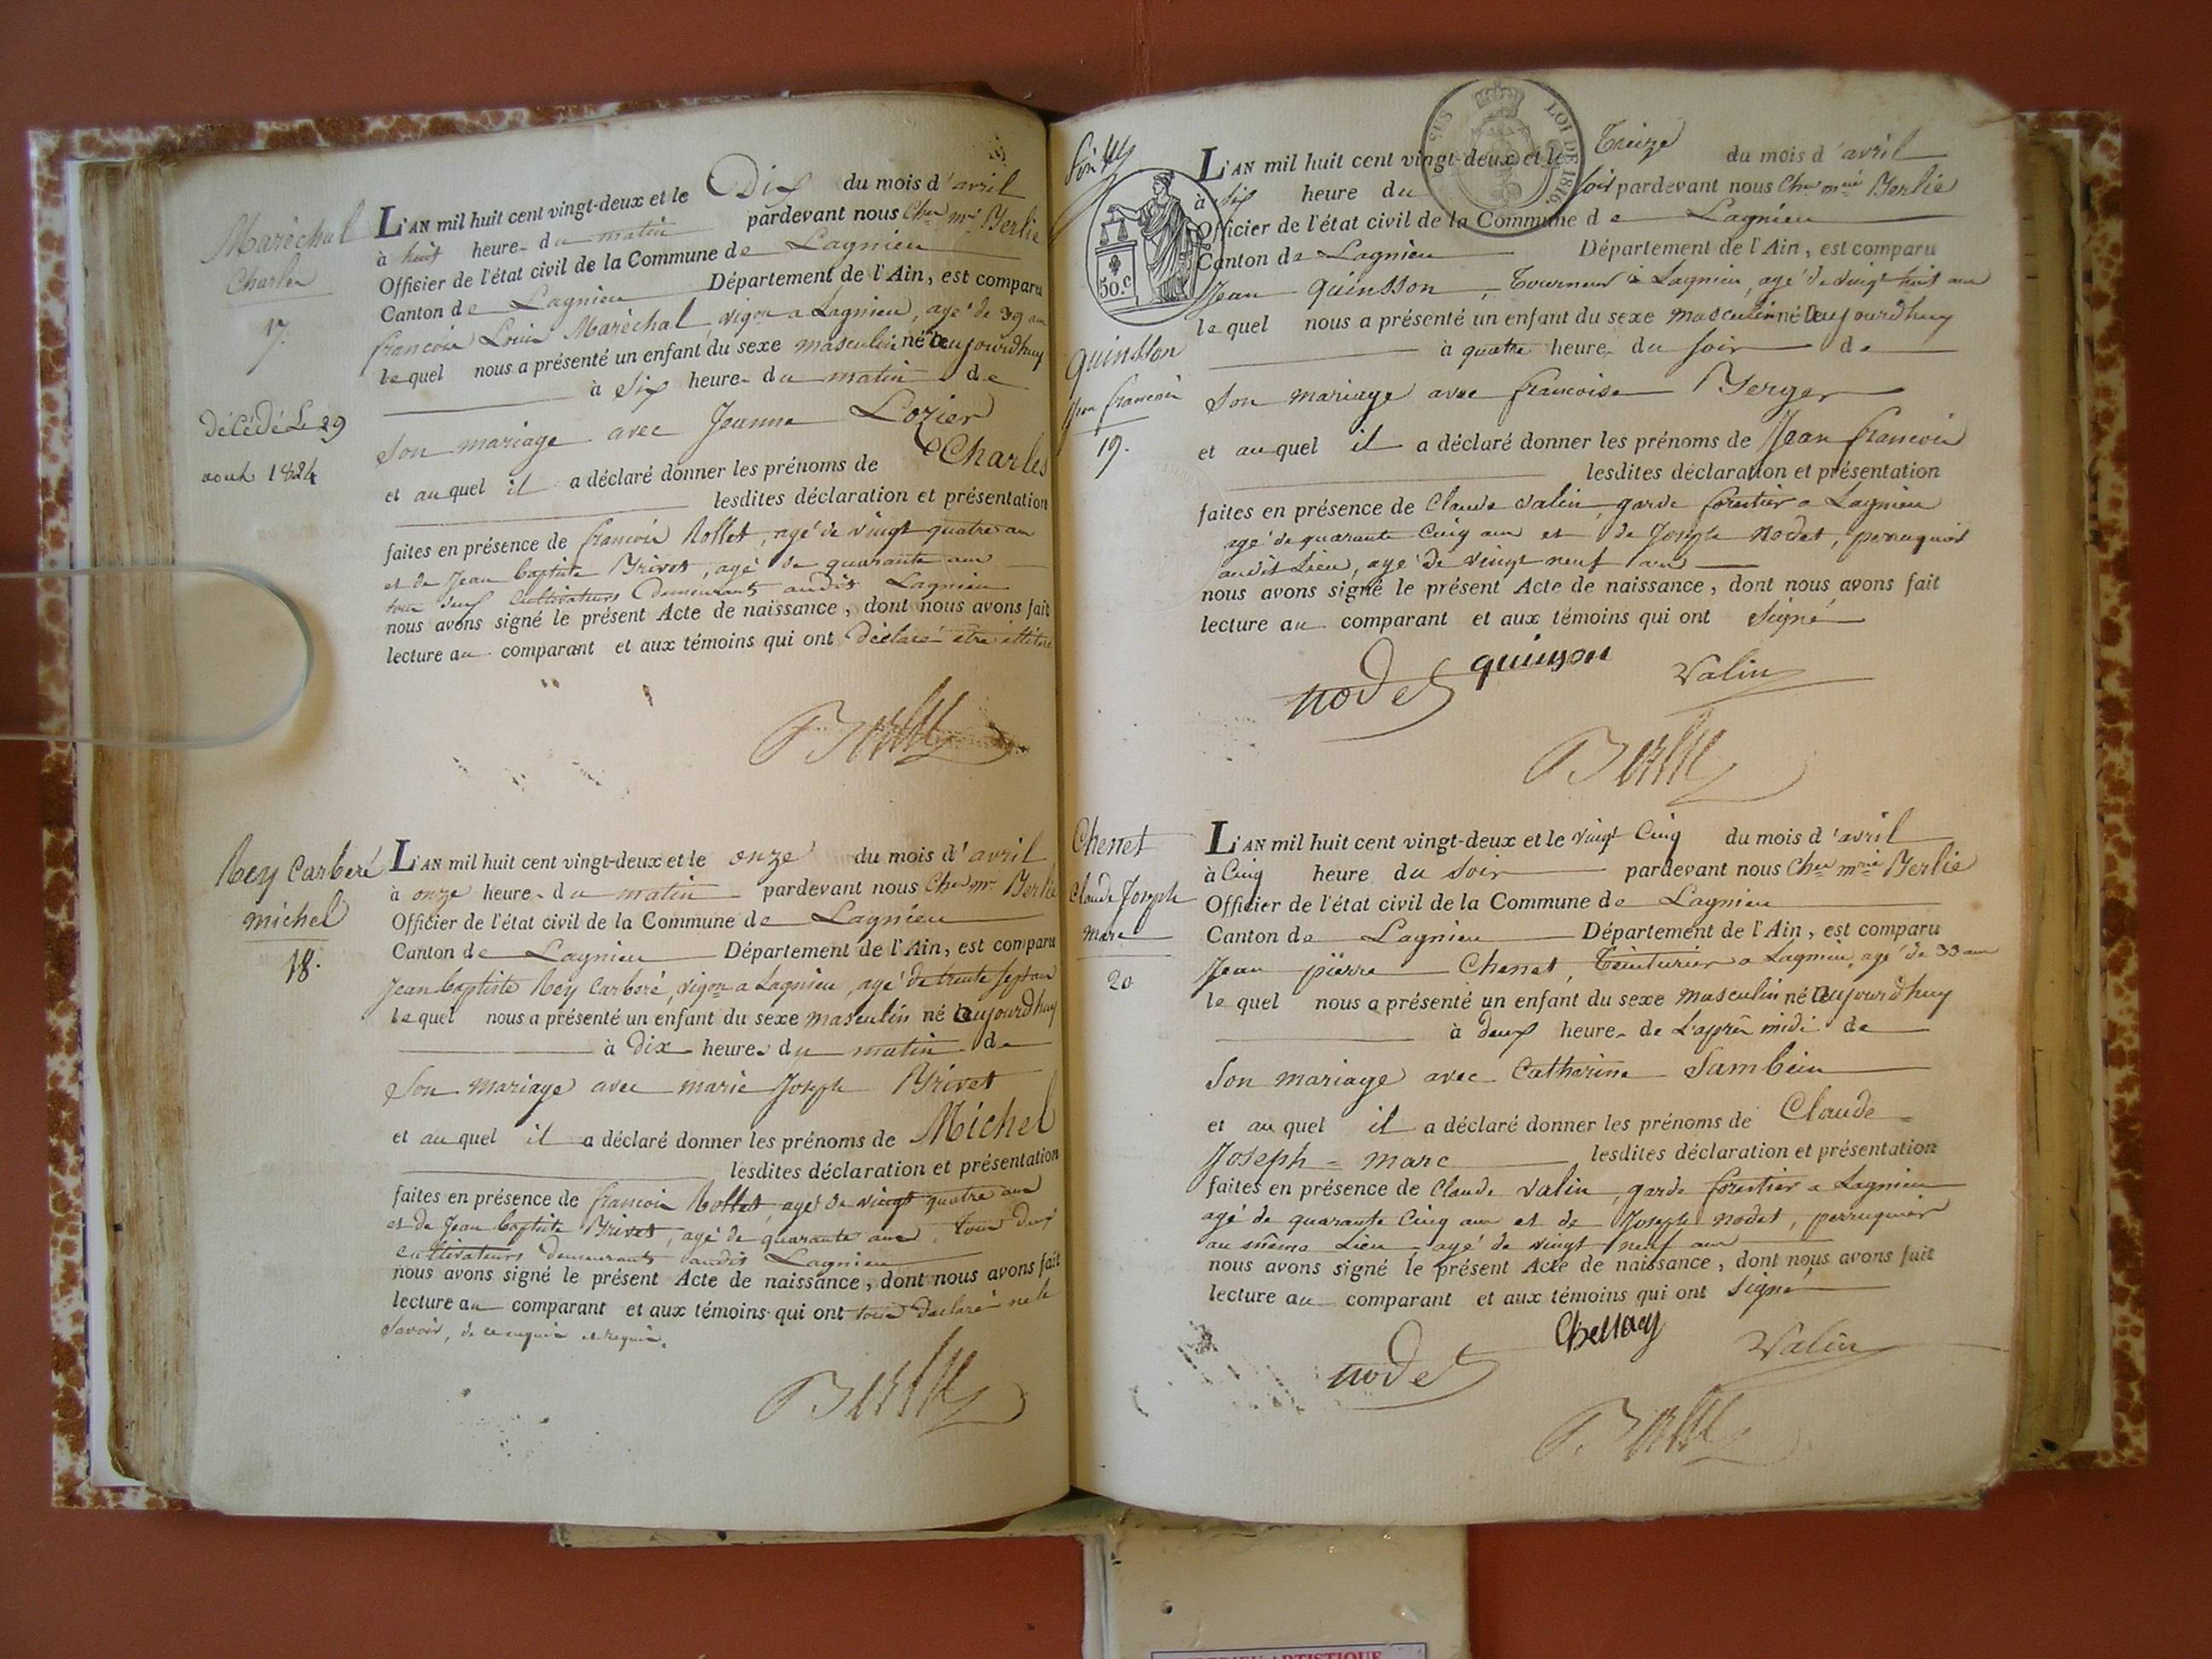 Maréchal
Charles
17.
décédé Le 29
aout 1824
L'AN mil huit cent vingt-deux et le Dix du mois d'avril
à huit heure du matin pardevant nous Cher me Berlie
Officier de l'état civil de la Commune de Lagnieu
Canton de Lagnieu Département de l'Ain, est comparu
francois Louis Maréchal vigon a Lagnieu, agé de 39 ans
lequel nous a présenté un enfant du sexe masculin né aujourdhuy
à Six heure du matin de
Son mariage avec Jeanne Lozier
et auquel il a déclaré donner les prénoms de Charles
lesdites déclaration et présentation
faites en présence de francois Rollet, agé de vingt quatre ans
et de Jean baptiste Brivet, agé de quarante ans
tous deux Cultivateurs Demeurants audit Lagnieu
nous avons signé le présent Acte de naissance, dont nous avons fait
lecture au comparant et aux témoins qui ont déclaré être illiteré
Berlie
Rey Carberé
michel
18.
L'AN mil huit cent vingt-deux et le onze du mois d'avril
à onze heure du matin pardevant nous Cher me Berlie
Officier de l'état civil de la Commune de Lagnieu
Canton de Lagnieu Département de l'Ain, est comparu
Jean baptiste Rey Carberé, vigon a Lagnieu, agé de trente sept ans
lequel nous a présenté un enfant du sexe masculin né aujourdhuy
à Dix heures du matin de
Son mariage avec marie Joseph Brivet
et auquel il a déclaré donner les prénoms de Michel
lesdites déclaration et présentation
faites en présence de francois Rollet, agé de vingt quatre ans
et de Jean baptiste Brivet, agé de quarante ans, tous deux
cultivateurs demeurants audit Lagnieu
nous avons signé le présent Acte de naissance, dont nous avons fait
lecture au comparant et aux témoins qui ont tous declaré ne le
Savoir, de ce enquis et requis.
Berlie
LOI DE 1816.
50.c
quinsson
Jean francois
19.
L'AN mil huit cent vingt-deux et le Treize du mois d'avril
à six heure du soir pardevant nous Cher me Berlie
Officier de l'état civil de la Commune de Lagnieu
Canton de Lagnieu Département de l'Ain, est comparu
Jean quinsson, Tourneur a Lagnieu, agé de vingt huit ans
lequel nous a présenté un enfant du sexe masculin né aujourdhuy
à quatre heure du soir de
Son mariage avec francoise Berger
et auquel il a déclaré donner les prénoms de Jean francois
lesdites déclaration et présentation
faites en présence de Claude Valin, garde forestier a Lagnieu
agé de quarante Cinq ans et de Joseph nodet, peruquier
audit Lieu, agé de vingt neuf ans
nous avons signé le présent Acte de naissance, dont nous avons fait
lecture au comparant et aux témoins qui ont Signé
nodet quinson Valin
Berlie
Chenet
Claude Joseph
marc
20
L'AN mil huit cent vingt-deux et le vingt Cinq du mois d'avril
à Cinq heure du Soir pardevant nous Cher me Berlie
Officier de l'état civil de la Commune de Lagnieu
Canton de Lagnieu Département de l'Ain, est comparu
Jean pierre Chenet, Teinturier a Lagnieu, agé de 33 ans
lequel nous a présenté un enfant du sexe masculin né aujourdhuy
à deux heure de L'après midi de
Son mariage avec Catharine Sambein
et auquel il a déclaré donner les prénoms de Claude =
Joseph = marc lesdites déclaration et présentation
faites en présence de Claude Valin, garde forestier a Lagnieu
agé de quarante Cinq ans et de Joseph nodet, perruquier
au même Lieu agé de vingt neuf ans
nous avons signé le présent Acte de naissance, dont nous avons fait
lecture au comparant et aux témoins qui ont Signé
nodet Valin
Berlie
ARTISTIQUE